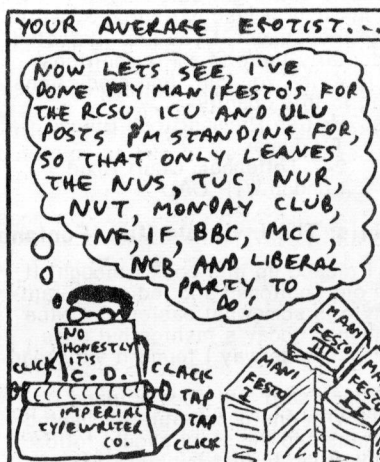 YOUR AVERAGE EGOTIST...
NOW LETS SEE, I'VE
DONE MY MANIFESTO'S FOR
THE RCSU, ICU AND ULU
POSTS I'M STANDING FOR,
SO THAT ONLY LEAVES
THE NUS, TUC, NUR,
NUT, MONDAY CLUB,
NF, IF, BBC, MCC,
NCB AND LIBERAL
PARTY TO
DO!
NO
HONESTLY
IT'S
C.D.
CLICK
CLACK
TAP
TAP
CLICK
IMPERIAL
TYPEWRITER
CO.
MANI
FESTO
I
MANI
FESTO
III
MA
FESTO
II